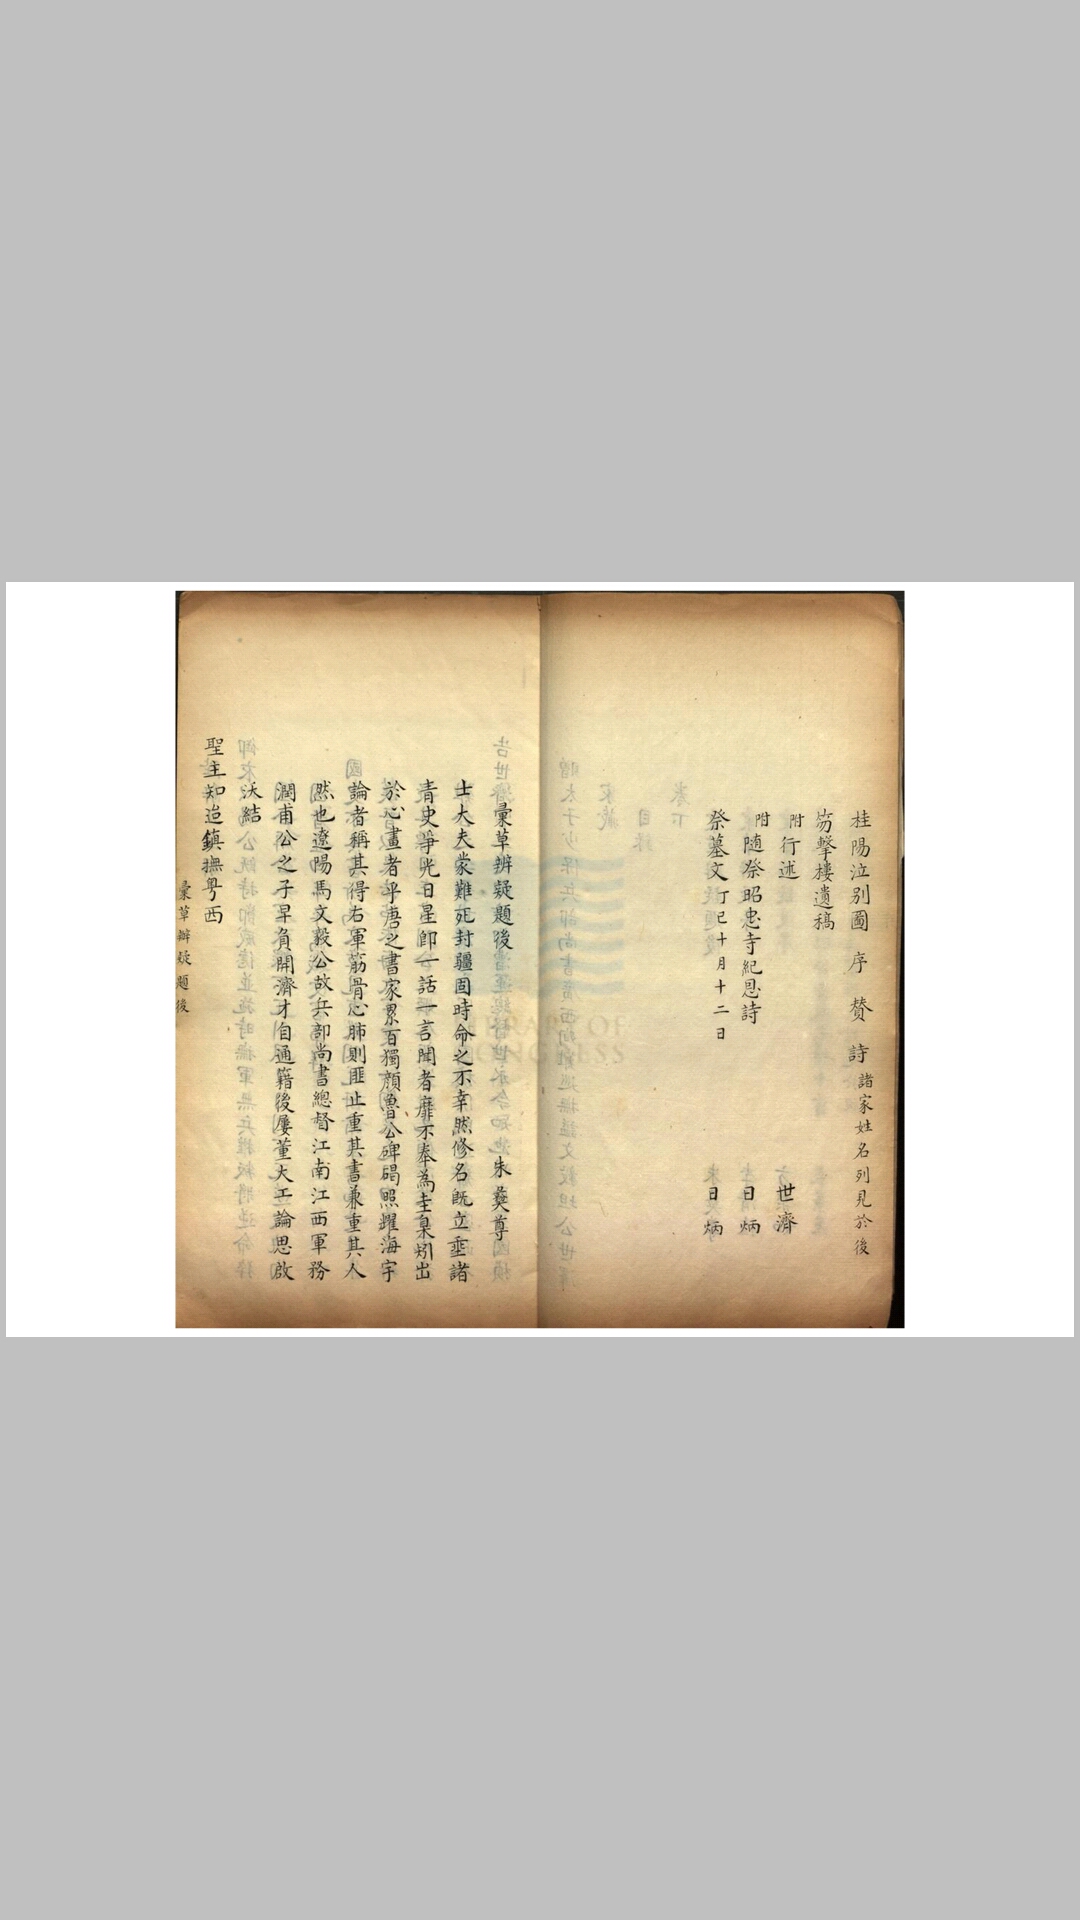 桂陽泣別圖 序 贊 詩 諸家姓名列見於後
笏擊樓遺稿
附行述 世濟
附隨祭昭忠寺紀恩詩 日炳
祭墓文 丁巳十月十二日 日炳
彙草辨疑題後 朱彝尊
士大夫蒙難死封疆固時命之不幸然修名既立垂諸
青史爭光日星即一話一言聞者靡不奉為圭臬矧出
於心畫者乎唐之書家累百獨顏魯公碑碣照耀海宇
論者稱其得右軍筋骨心肺則匪止重其書兼重其人
然也遼陽馬文毅公故兵部尚書總督江南江西軍務
潤甫公之子早負開濟才自通籍後屢董大工論思啟
沃結
聖主知迨鎮撫粵西
彙草辨疑題後
LIBRARY OF
CONGRESS